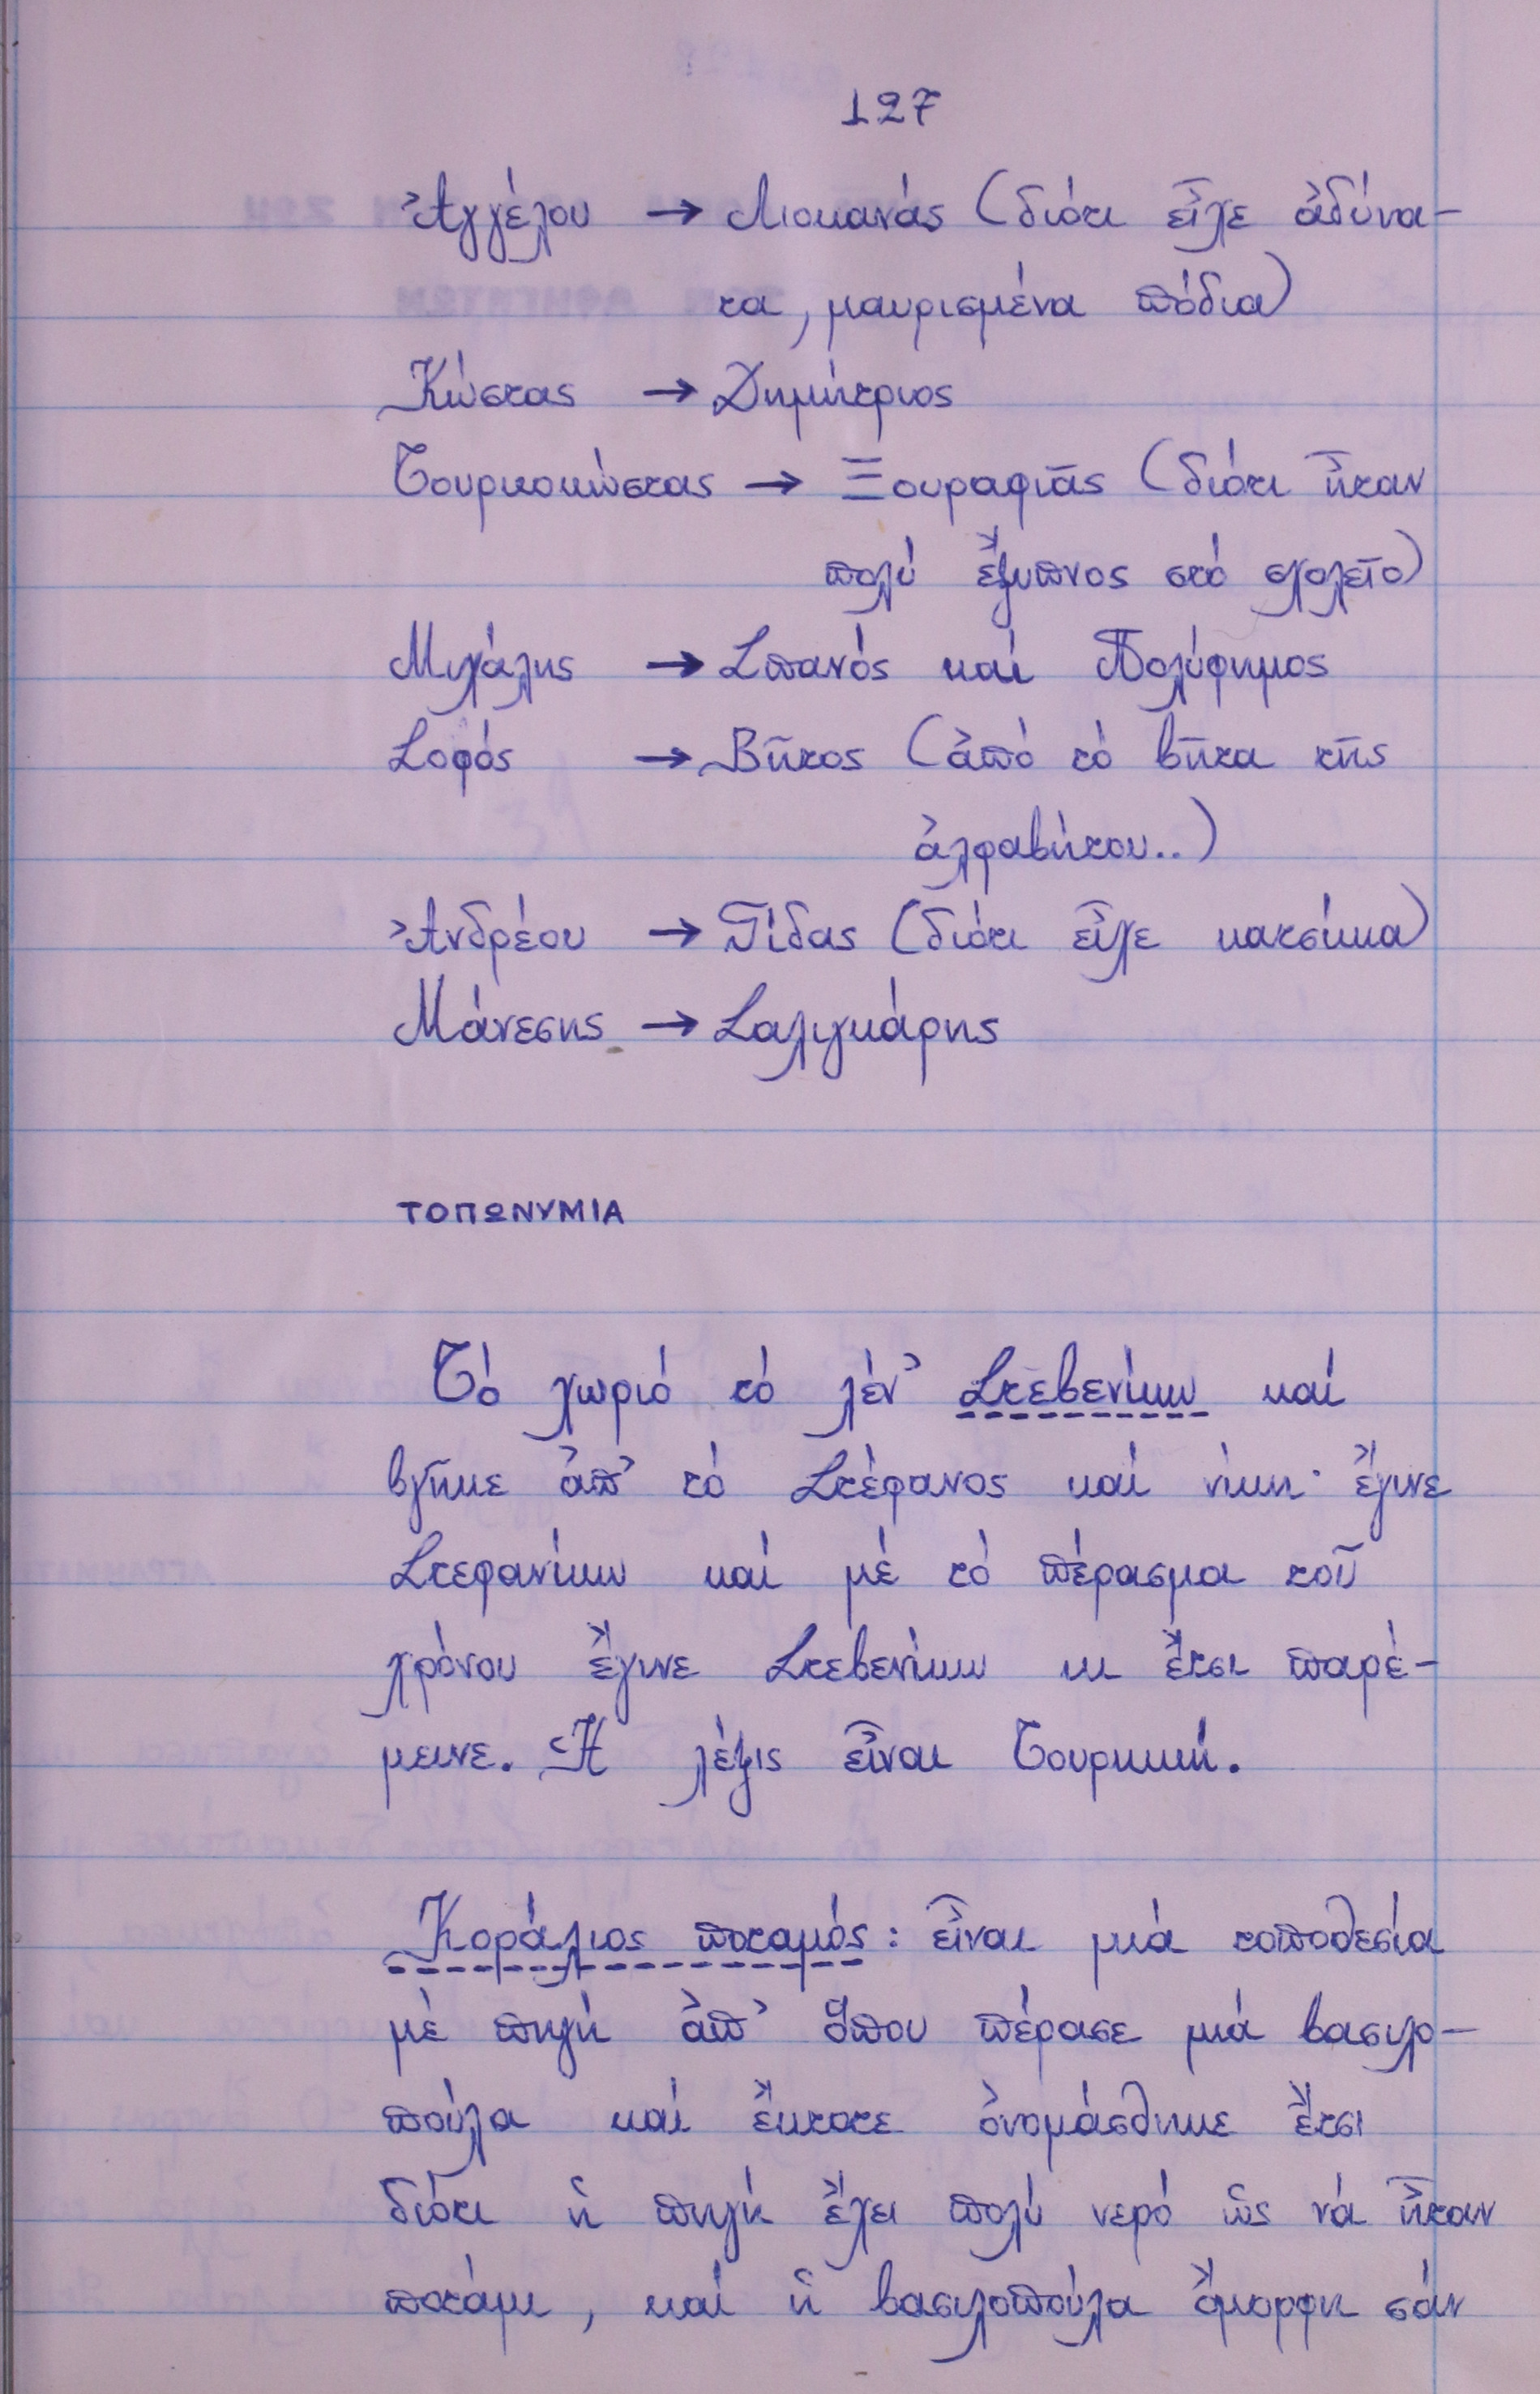 127
Ἀγγέλου → Λιοκανάς (διότι εἶχε ἀδύνα-
τα, μαυρισμένα πόδια)
Κώστας → Δημήτριος
Τουρκοκώστας → Ξουραφιᾶς (διότι ἦταν
πολύ ἔξυπνος στό σχολεῖο)
Μιχάλης → Σπανός καί Πολύφημος
Σοφός → Βῆτος (ἀπό τό βῆτα τῆς
ἀλφαβήτου..)
Ἀνδρέου → Γίδας (διότι εἶχε κατσίκα)
Μάνεσης → Σαλιγκάρης
ΤΟΠΩΝΥΜΙΑ
Τό χωριό τό λέν' Στεβενίκω καί
βγῆκε ἀπ' τό Στέφανος καί νίκη· ἔγινε
Στεφανίκω καί μέ τό πέρασμα τοῦ
χρόνου ἔγινε Στεβενίκω κι ἔτσι παρέ-
μεινε. Ἡ λέξις εἶναι Τουρκική.
Κοράλιος ποταμός: εἶναι μιά τοποθεσία
μέ πηγή ἀπ' ὅπου πέρασε μιά βασιλο-
πούλα καί ἔκτοτε ὀνομάσθηκε ἔτσι
διότι ἡ πηγή ἔχει πολύ νερό ὡς νά ἦταν
ποτάμι, καί ἡ βασιλοπούλα ὄμορφη σάν